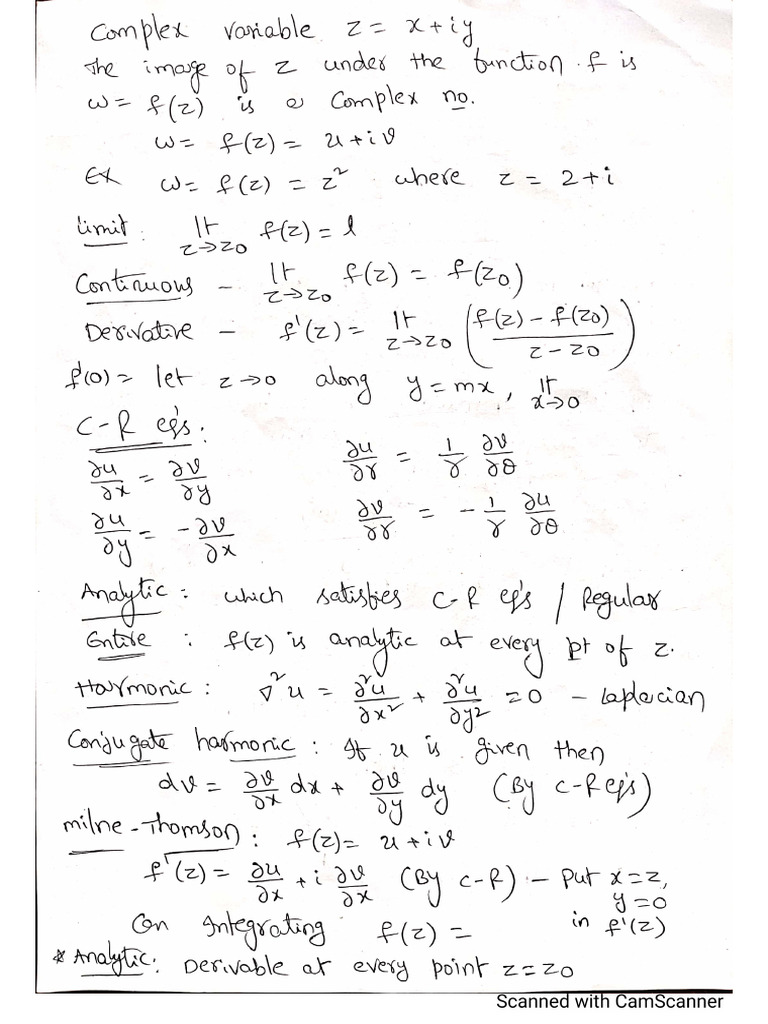 Complex variable z = x+iy
The image of z under the function f is
w = f(z) is a Complex no.
w = f(z) = u+iv
Ex w = f(z) = z² where z = 2+i
Limit: lt z→z0 f(z) = l
Continuous - lt z→z0 f(z) = f(z0)
Derivative - f'(z) = lt z→z0 ( f(z) - f(z0) / z - z0 )
f'(0) = let z→0 along y = mx, lt x→0
C-R eq's:
∂u/∂x = ∂v/∂y ∂u/∂r = 1/r ∂v/∂θ
∂u/∂y = -∂v/∂x ∂v/∂r = -1/r ∂u/∂θ
Analytic: which satisfies C-R eq's / Regular
Entire: f(z) is analytic at every pt of z.
Harmonic: ∇²u = ∂²u/∂x² + ∂²u/∂y² = 0 - Laplacian
Conjugate harmonic: If u is given then
dv = ∂v/∂x dx + ∂v/∂y dy (By C-R eq's)
Milne-Thomson: f(z) = u+iv
f'(z) = ∂u/∂x + i ∂v/∂x (By C-R) - Put x=z,
y=0
On Integrating f(z) = in f'(z)
* Analytic: Derivable at every point z=z0
Scanned with CamScanner